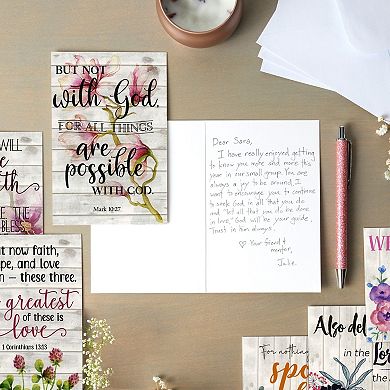 BUT NOT
with God,
FOR ALL THINGS
are
possible
WITH GOD.
Mark 10:27
Dear Sara,
I have really enjoyed getting
to know you more and more this
year in our small group. You are
always a joy to be around. I
want to encourage you to continue
to seek God in all that you do
and "let all that you do be done
in love." God will be your guide.
Trust in him always.
♡ Your friend &
mentor,
Julie
WILL
THE
BLESS
now faith,
pe, and love
n – these three.
greatest
of these is
love
1 Corinthians 13:13
For nothing
spo
Also del
in the Lor